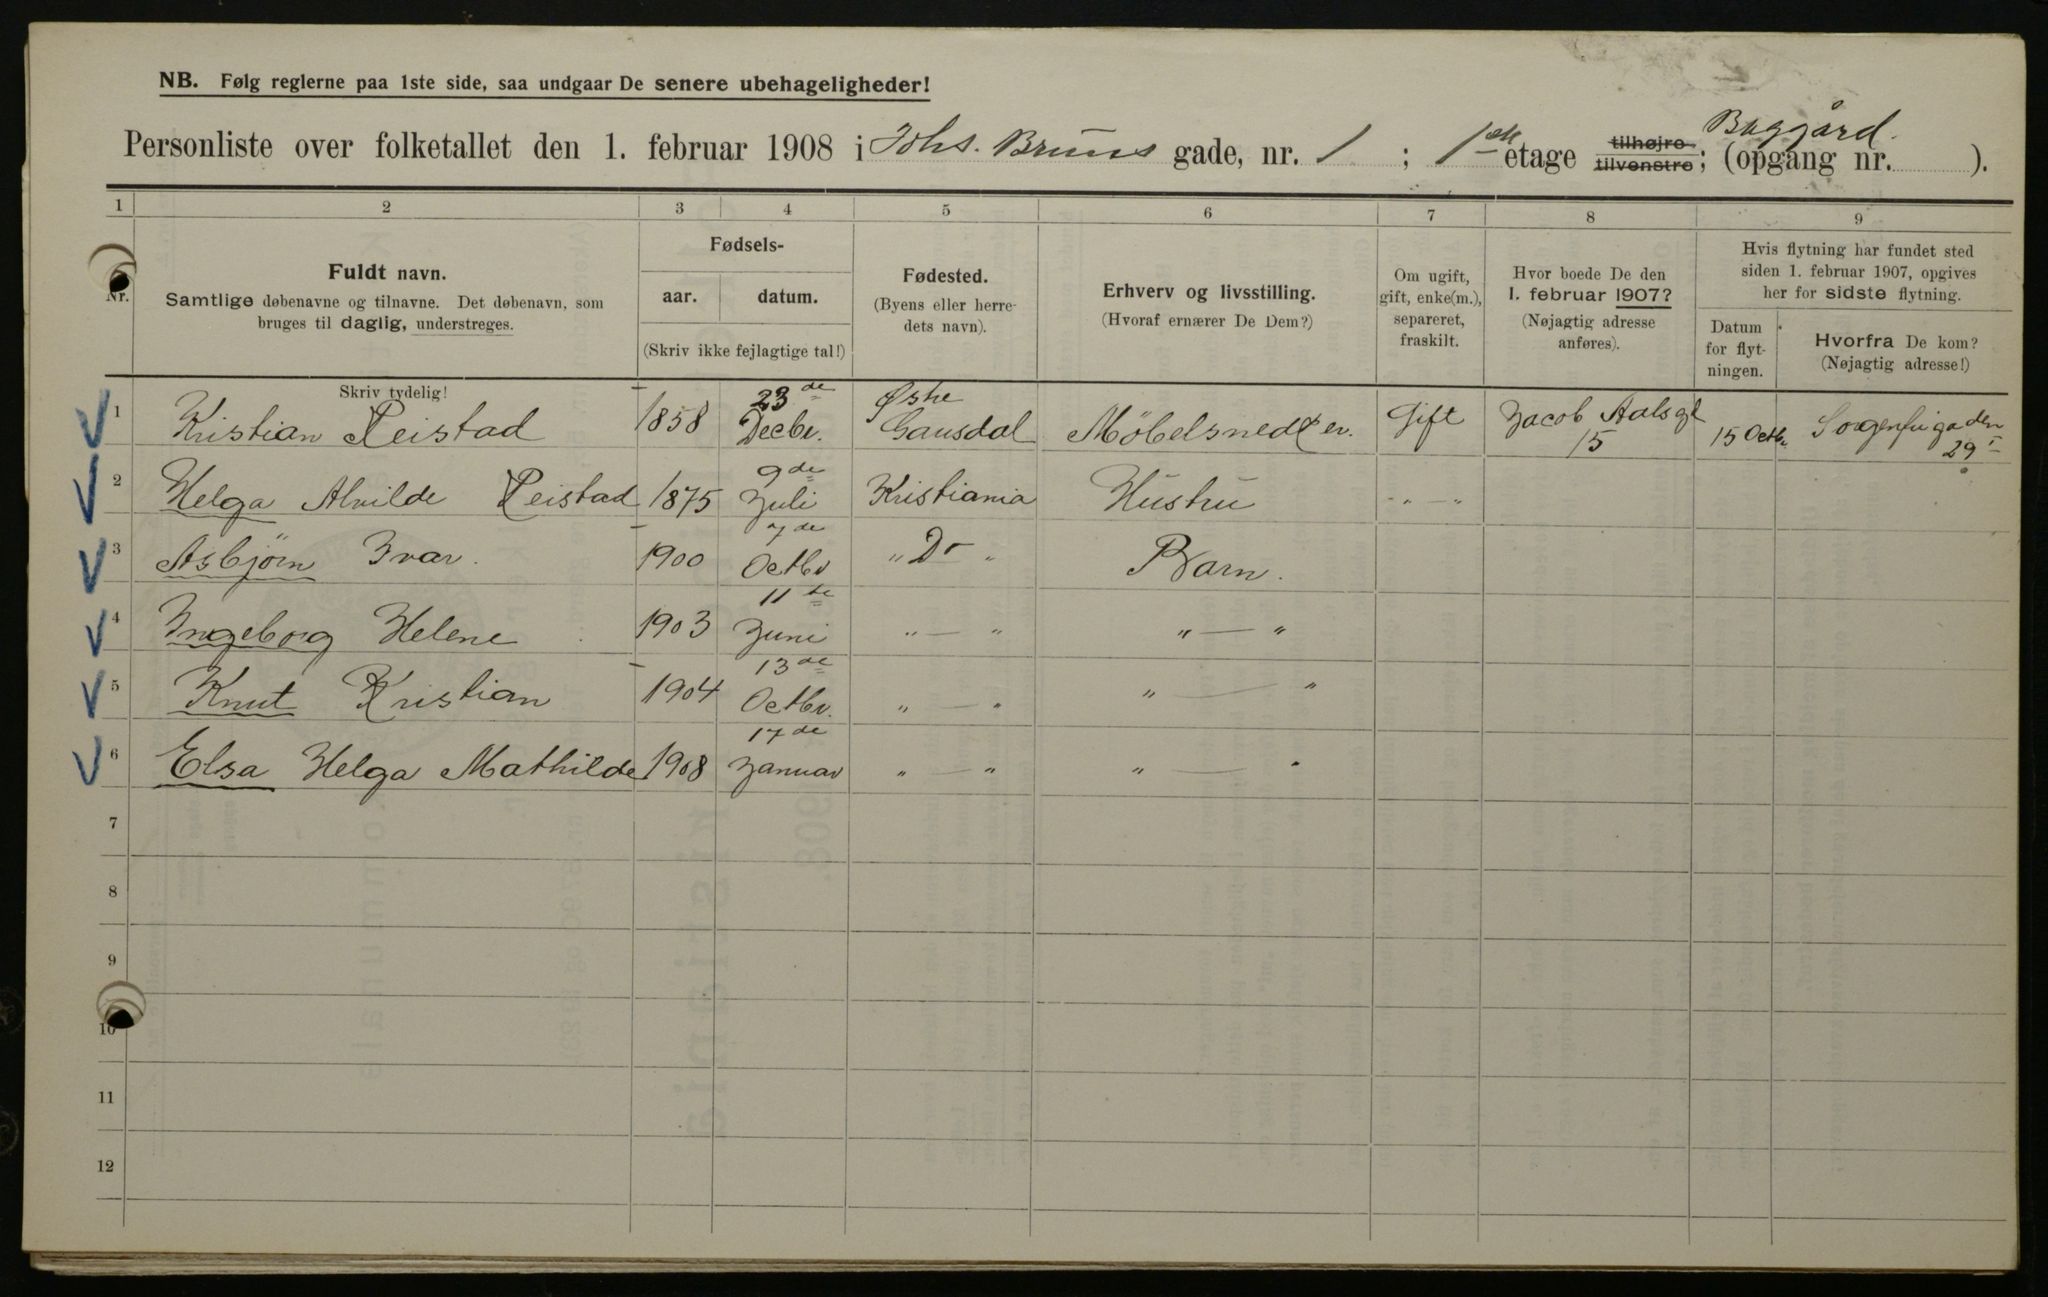 NB. Følg reglerne paa 1ste side, saa undgaar De senere ubehageligheder!
Baggård.
Personliste over folketallet den 1. februar 1908 i Johs. Bruns gade, nr. 1 ; 1ste etage tilhøjre tilvenstre; (opgang nr. ).
1 2 3 4 5 6 7 8 9
Nr.
Fuldt navn.
Samtlige døbenavne og tilnavne. Det døbenavn, som
bruges til daglig, understreges.
Skriv tydelig!
Fødsels-
aar. datum.
(Skriv ikke fejlagtige tal!)
Fødested.
(Byens eller herre-
dets navn).
Erhverv og livsstilling.
(Hvoraf ernærer De Dem?)
Om ugift,
gift, enke(m.),
separeret,
fraskilt.
Hvor boede De den
1. februar 1907?
(Nøjagtig adresse
anføres).
Hvis flytning har fundet sted
siden 1. februar 1907, opgives
her for sidste flytning.
Datum
for flyt-
ningen.
Hvorfra De kom?
(Nøjagtig adresse!)
1 Kristian Reistad 1858 23de Decbr. Østre Gausdal Möbelsnedker. Gift Jacob Aalsgt 15 15 Octbr. Sorgenfrigaden 29 I
2 Helga Alvilde Reistad 1875 9de Juli Kristiania Hustru " — "
3 Asbjørn Ivar. 1900 7de Octbr " Do " Barn.
4 Ingeborg Helene 1903 11te Juni " — " " — "
5 Knut Kristian 1904 13de Octbr. " — " " — "
6 Elsa Helga Mathilde 1908 17de Januar " — " " — "
7
8
9
10
11
12